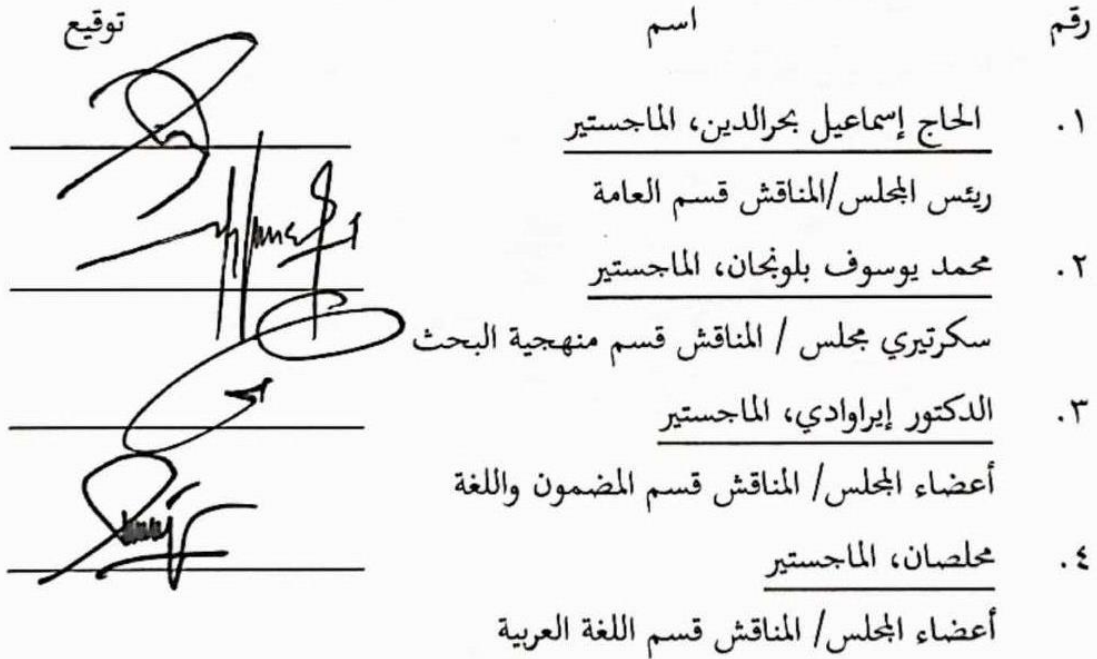 رقم اسم توقيع
١. الحاج إسماعيل بحرالدين، الماجستير
ريئس المجلس/المناقش قسم العامة
٢. محمد يوسوف بلونجان، الماجستير
سكرتيري مجلس / المناقش قسم منهجية البحث
٣. الدكتور إيراوادي، الماجستير
أعضاء المجلس/ المناقش قسم المضمون واللغة
٤. محلصان، الماجستير
أعضاء المجلس/ المناقش قسم اللغة العربية